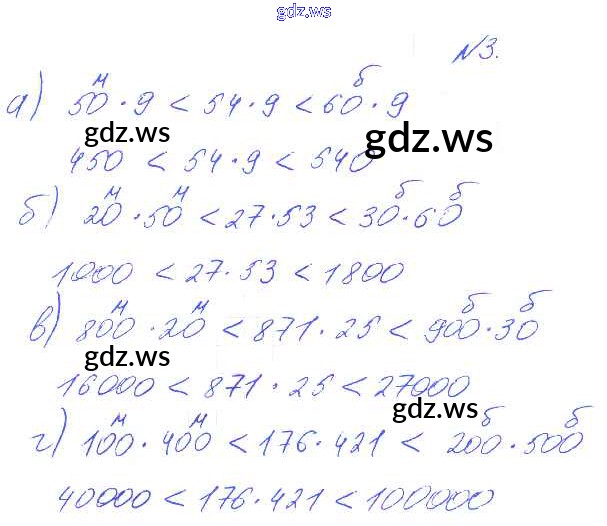 gdz.ws
№3.
а) 50 · 9 < 54 · 9 < 60 · 9
м б
gdz.ws gdz.ws
450 < 54 · 9 < 540
б) 20 · 50 < 27 · 53 < 30 · 60
м м б б
1000 < 27 · 53 < 1800
в) 800 · 20 < 871 · 25 < 900 · 30
м м б б
gdz.ws
16000 < 871 · 25 < 27000
gdz.ws
г) 100 · 400 < 176 · 421 < 200 · 500
м м б б
40000 < 176 · 421 < 100000